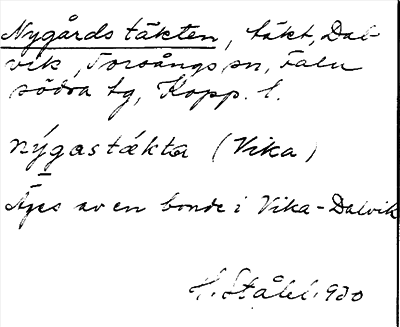 Nygårdstäkten, täkt, Dal-
vik, Torsångs sn, Falu
södra tg, Kopp. l.
nýgastäkta (Vika)
Äges av en bonde i Vika-Dalvik
H. Ståhl 1930